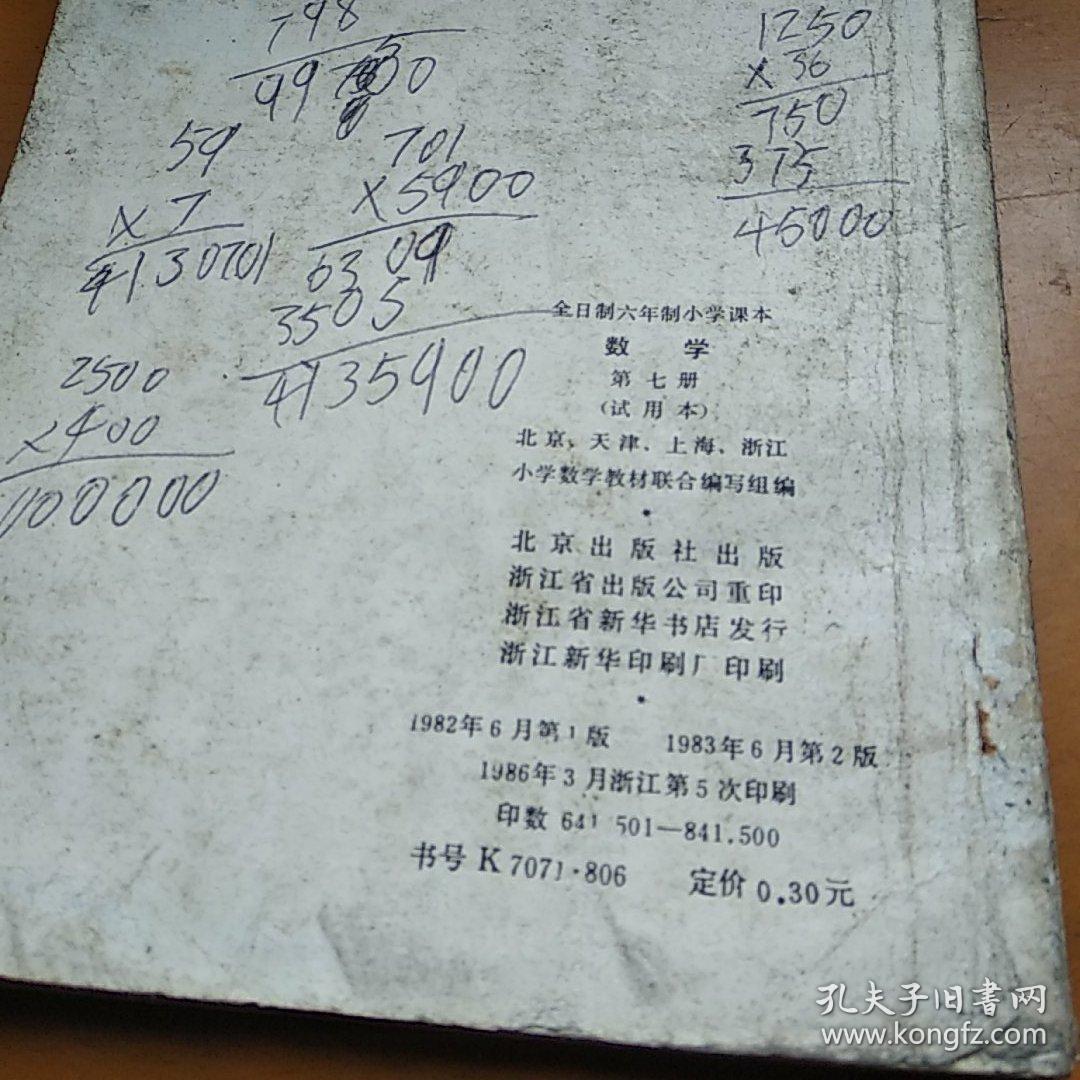 798
99 50
1250
× 36
750
375
45000
59
× 7
4130701
701
×5900
6309
3505
4135900
2500
×400
1000000
全日制六年制小学课本
数 学
第七册
(试用本)
北京、天津、上海、浙江
小学数学教材联合编写组编
北京出版社出版
浙江省出版公司重印
浙江省新华书店发行
浙江新华印刷厂印刷
1982年6月第1版 1983年6月第2版
1986年3月浙江第5次印刷
印数 641 501—841.500
书号 K 7071·806 定价 0.30元
孔夫子旧书网
www.kongfz.com